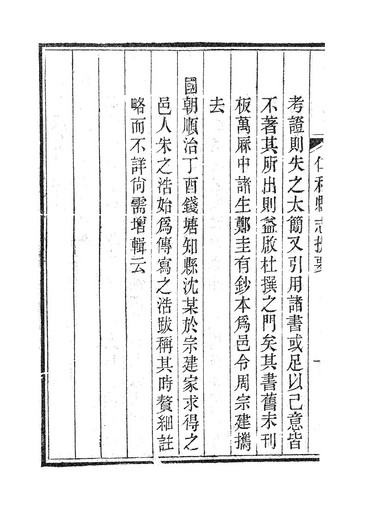 仁和縣志提要
一
考證則失之太簡又引用諸書或足以己意皆
不著其所出則益啟杜撰之門矣其書舊未刊
板萬厯中諸生鄭圭有鈔本爲邑令周宗建攜
去
國朝順治丁酉錢塘知縣沈某於宗建家求得之
邑人朱之浩始爲傳寫之浩跋稱其時贅細註
略而不詳尙需增輯云